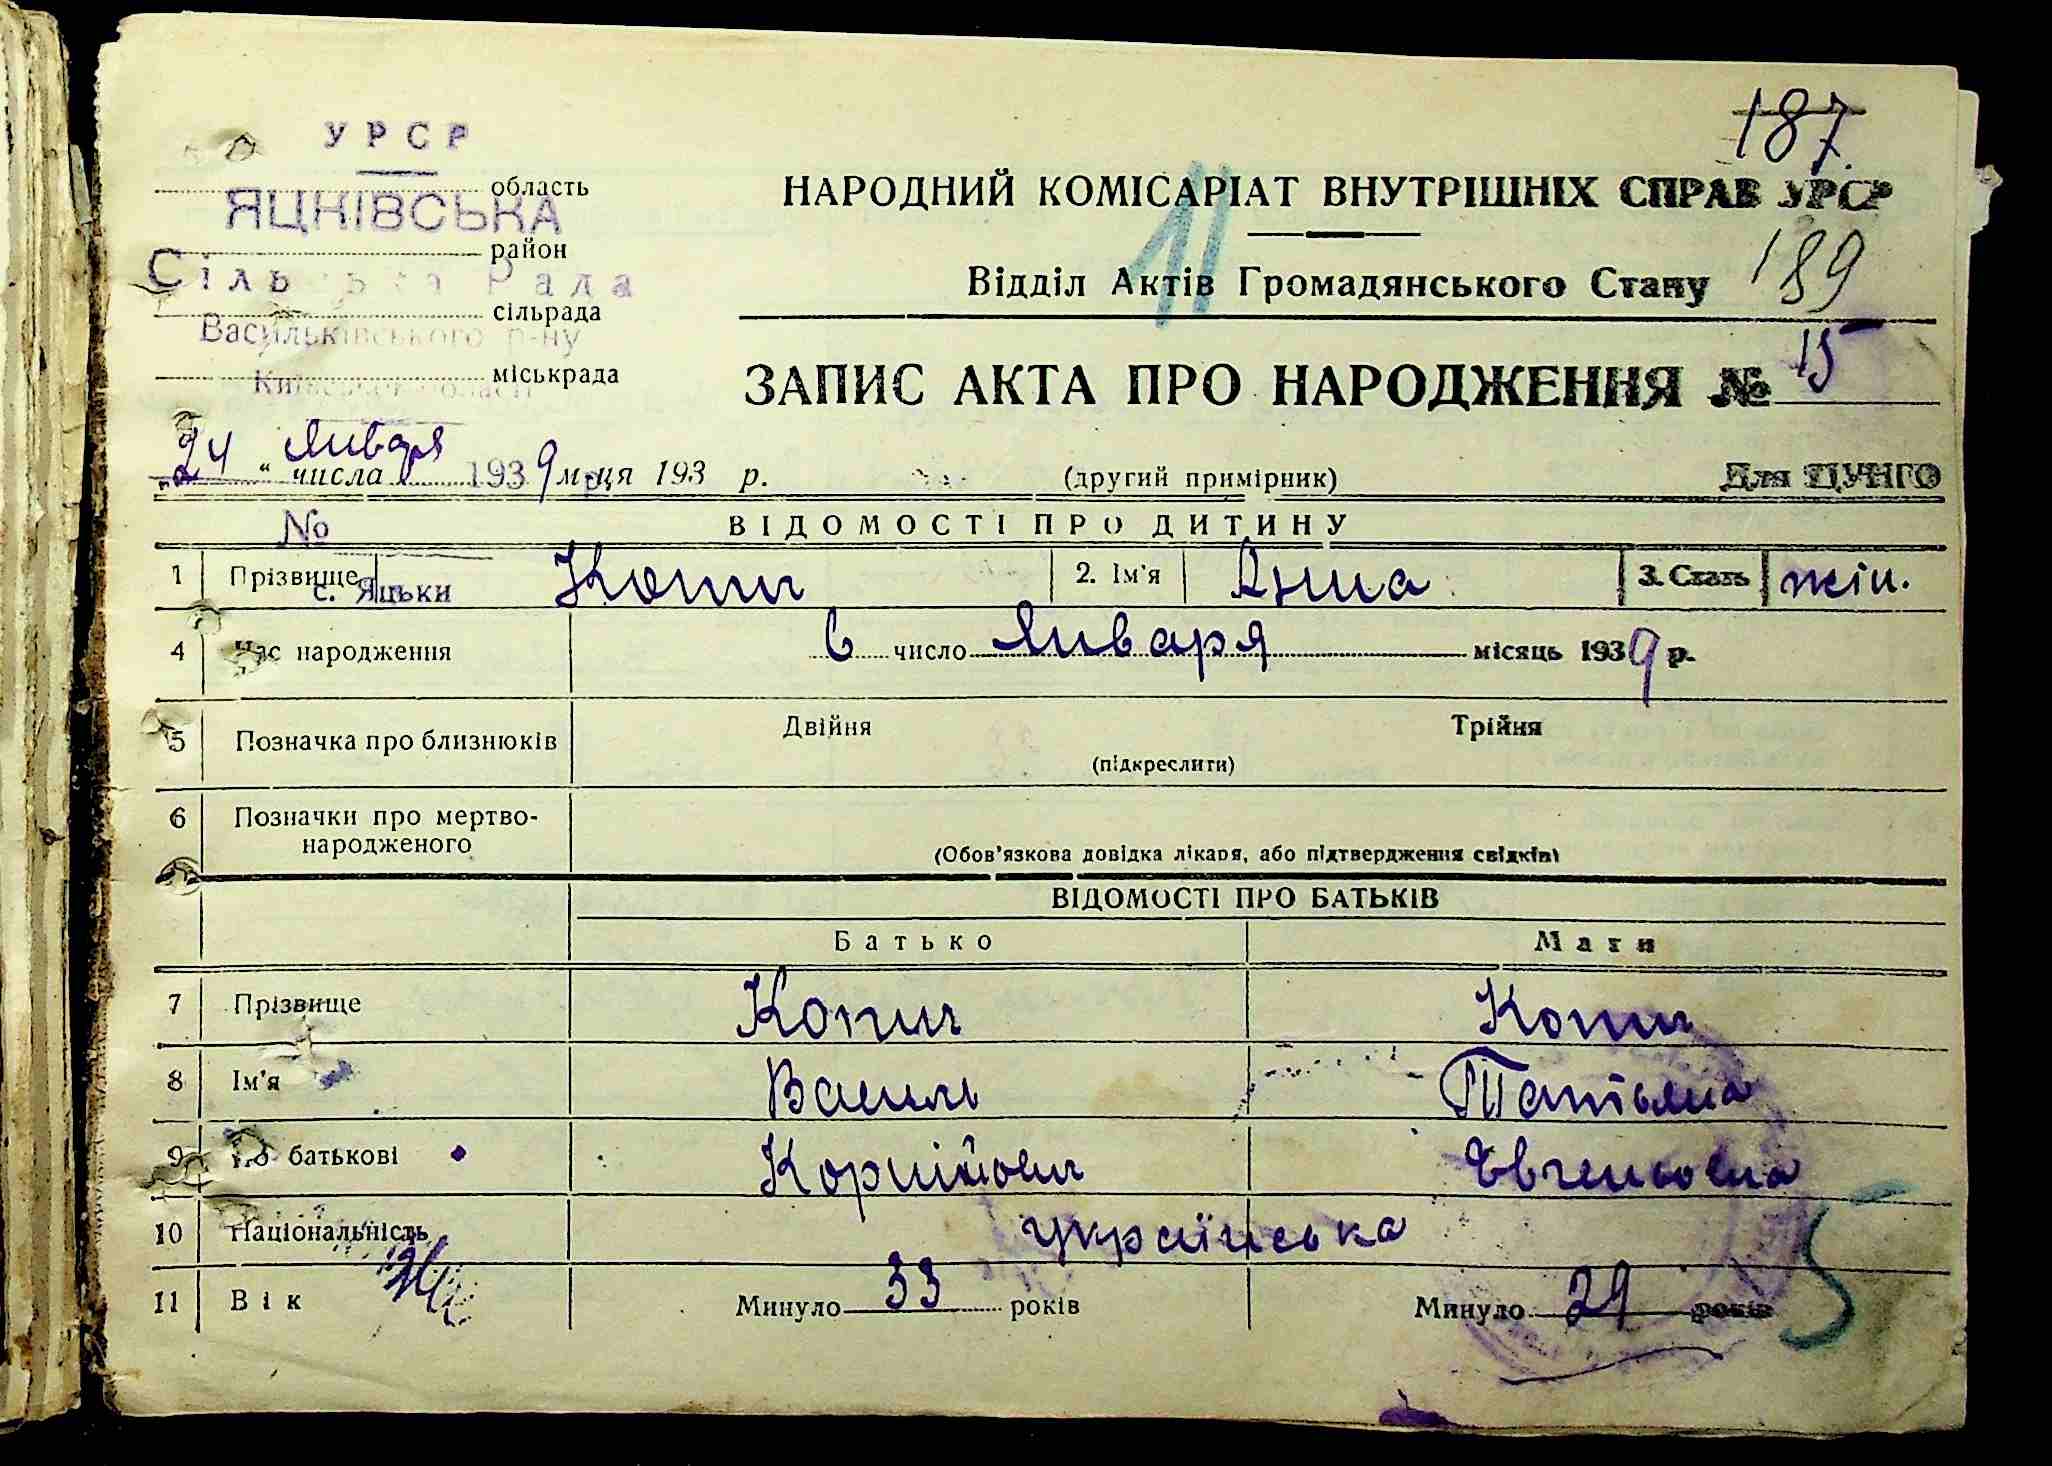 187.
УРСР
область
НАРОДНИЙ КОМІСАРІАТ ВНУТРІШНІХ СПРАВ УРСР
ЯЦКІВСЬКА
район
11
189
Сільська Рада
Відділ Актів Громадянського Стану
сільрада
Васильківського р-ну
міськрада
Київської області
ЗАПИС АКТА ПРО НАРОДЖЕННЯ № 15
„24 “ числа Января 1939 м-ця 193 р.
(другий примірник)
Для ЦУНГО
№
ВІДОМОСТІ ПРО ДИТИНУ
1 Прізвище Копич 2. Ім'я Анна 3. Стать жін.
с. Яцьки
4 Час народження 6 число Января місяць 1939 р.
5 Позначка про близнюків Двійня Трійня
(підкреслити)
6 Позначки про мертво-
народженого
(Обов'язкова довідка лікаря, або підтвердження свідків)
ВІДОМОСТІ ПРО БАТЬКІВ
Батько Мати
7 Прізвище Копич Копич
8 Ім'я Василь Татьяна
9 По батькові Корнійович Євгеньовна
10 Національність українська
11 Вік Минуло 33 років Минуло 29 років
5